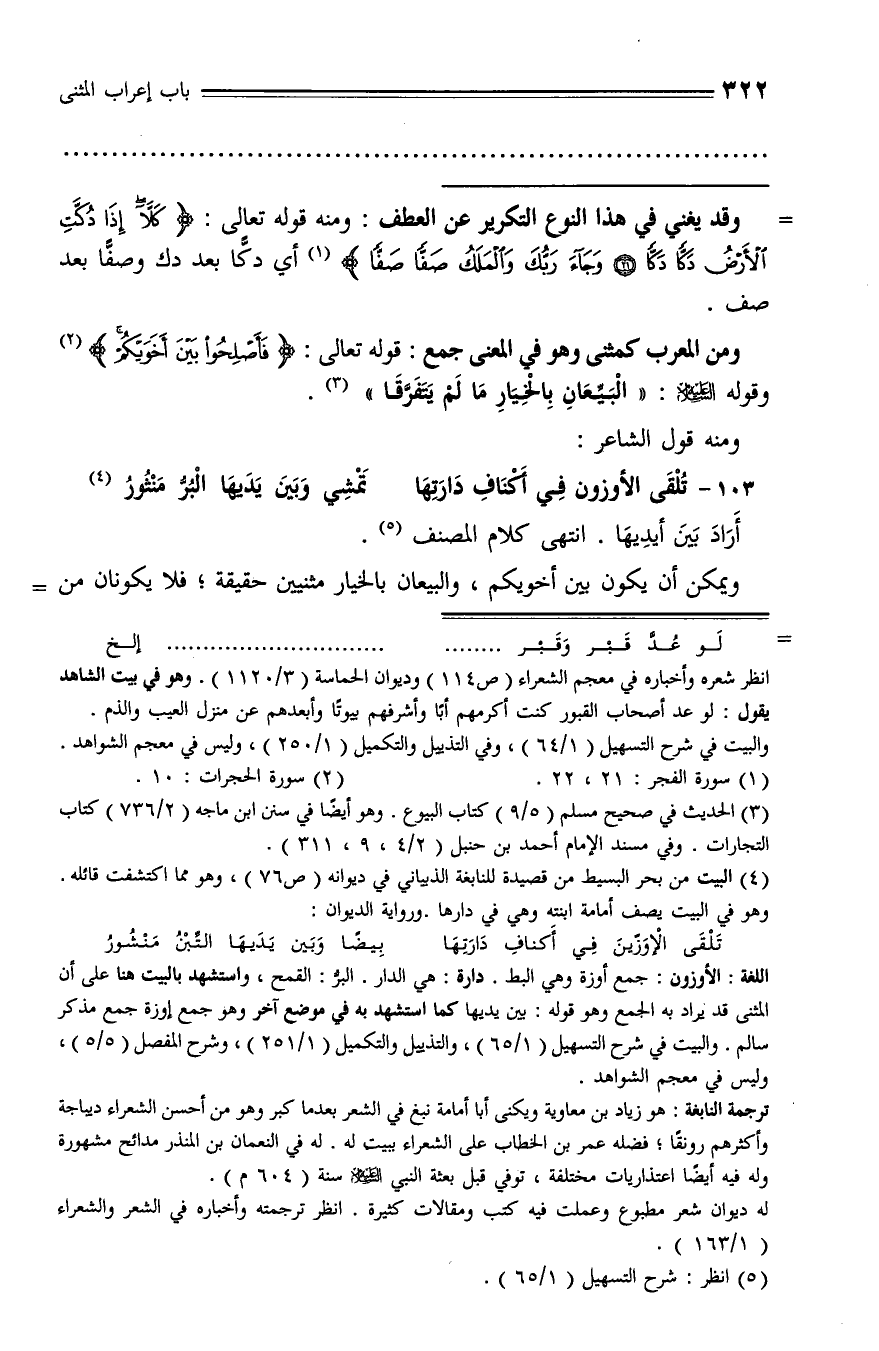 ٣٢٢ باب إعراب المثنى
................................................................................
= وقد يغني في هذا النوع التكرير عن العطف : ومنه قوله تعالى : ﴿ كَلَّآ إِذَا دُكَّتِ
ٱلْأَرْضُ دَكًّا دَكًّا ۝٢١ وَجَآءَ رَبُّكَ وَٱلْمَلَكُ صَفًّا صَفًّا ﴾ (١) أي دكًّا بعد دك وصفًّا بعد
صف .
ومن المعرب كمثنى وهو في المعنى جمع : قوله تعالى : ﴿ فَأَصْلِحُوا۟ بَيْنَ أَخَوَيْكُمْ ﴾ (٢)
وقوله : « الْبَيِّعَانِ بِالْخِيَارِ مَا لَمْ يَتَفَرَّقَا » (٣) .
ومنه قول الشاعر :
١٠٣ - تُلْقَى الأوزون فِي أَكْنَافِ دَارَتِهَا تَمْشِي وَبَينَ يَدَيهَا الْبُرُّ مَنْثُورُ (٤)
أَرَادَ بَينَ أَيدِيهَا . انتهى كلام المصنف (٥) .
ويمكن أن يكون بين أخويكم ، والبيعان بالخيار مثنيين حقيقة ؛ فلا يكونان من =
= لَـو عُـدَّ قَبْـر وَقَبْـر ........ ............................ إلـخ
انظر شعره وأخباره في معجم الشعراء ( ص١١٤ ) وديوان الحماسة ( ١١٢٠/٣ ) . وهو في بيت الشاهد
يقول : لو عد أصحاب القبور كنت أكرمهم أبًا وأشرفهم بيوتًا وأبعدهم عن منزل العيب والذم .
والبيت في شرح التسهيل ( ٦٤/١ ) ، وفي التذييل والتكميل ( ٢٥٠/١ ) ، وليس في معجم الشواهد .
(١) سورة الفجر : ٢١ ، ٢٢ . (٢) سورة الحجرات : ١٠ .
(٣) الحديث في صحيح مسلم ( ٩/٥ ) كتاب البيوع . وهو أيضًا في سنن ابن ماجه ( ٧٣٦/٢ ) كتاب
التجارات . وفي مسند الإمام أحمد بن حنبل ( ٤/٢ ، ٩ ، ٣١١ ) .
(٤) البيت من بحر البسيط من قصيدة للنابغة الذبياني في ديوانه ( ص٧٦ ) ، وهو مما اكتشفت قائله .
وهو في البيت يصف أمامة ابنته وهي في دارها .ورواية الديوان :
تَلْقَى الْإوَزِّينَ فِـي أَكنافِ دَارَتِهَـا بِيـضًا وَبَين يَدَيهَـا التِّبْنُ مَنْـثُورُ
اللغة : الأوزون : جمع أوزة وهي البط . دارة : هي الدار . البرُّ : القمح ، واستشهد بالبيت هنا على أن
المثنى قد يراد به الجمع وهو قوله : بين يديها كما استشهد به في موضع آخر وهو جمع إوزة جمع مذكر
سالم . والبيت في شرح التسهيل ( ٦٥/١ ) ، والتذييل والتكميل ( ٢٥١/١ ) ، وشرح المفصل ( ٥/٥ ) ،
وليس في معجم الشواهد .
ترجمة النابغة : هو زياد بن معاوية ويكنى أبا أمامة نبغ في الشعر بعدما كبر وهو من أحسن الشعراء ديباجة
وأكثرهم رونقًا ؛ فضله عمر بن الخطاب على الشعراء ببيت له . له في النعمان بن المنذر مدائح مشهورة
وله فيه أيضًا اعتذاريات مختلفة ، توفي قبل بعثة النبي سنة ( ٦٠٤ م ) .
له ديوان شعر مطبوع وعملت فيه كتب ومقالات كثيرة . انظر ترجمته وأخباره في الشعر والشعراء
( ١٦٣/١ ) .
(٥) انظر : شرح التسهيل ( ٦٥/١ ) .